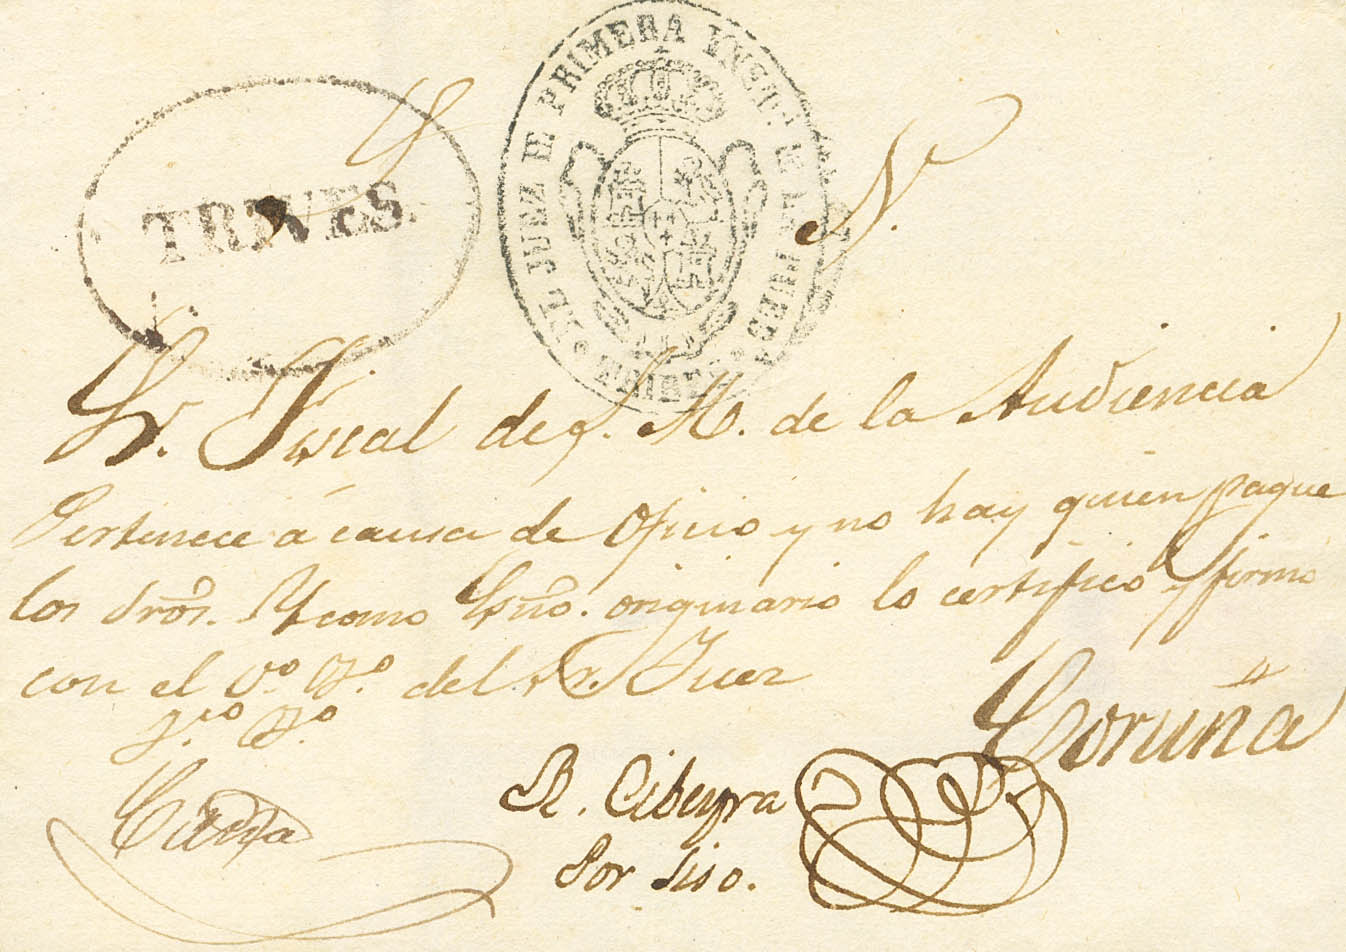 TRIVES.
EL JUEZ DE PRIMERA INST.ª DE
N.
Sr. Fiscal de S. M. de la Audiencia
Pertenece á causa de Oficio y no hay quien pague
los dros. Y como Esño. originario lo certifico y firmo
con el Vº Bº del Sr. Juez
Vº Bº
Coruña
R. Cibeyra